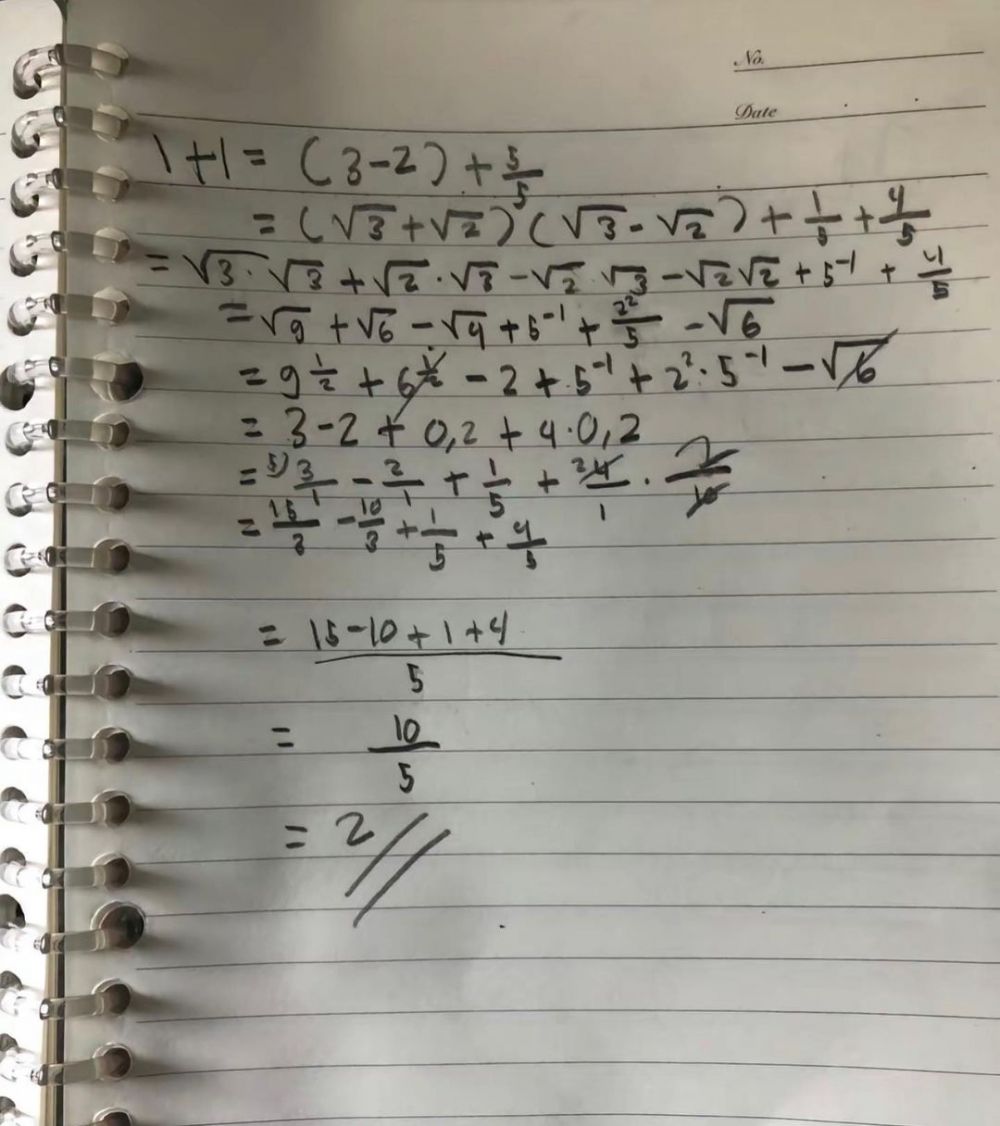 No.
Date
1+1 = (3-2) + 5/5
= (√3+√2)(√3-√2) + 1/5 + 4/5
= √3·√3 + √2·√3 - √2·√3 - √2√2 + 5⁻¹ + 4/5
= √9 + √6 - √4 + 5⁻¹ + 2²/5 - √6
= 9^1/2 + 6^1/2 - 2 + 5⁻¹ + 2²·5⁻¹ - √6
= 3-2 + 0,2 + 4·0,2
= 5) 3/1 - 2/1 + 1/5 + 2 4/1 · 2/10
= 15/3 - 10/3 + 1/5 + 4/5
= 15-10+1+4/5
= 10/5
= 2//